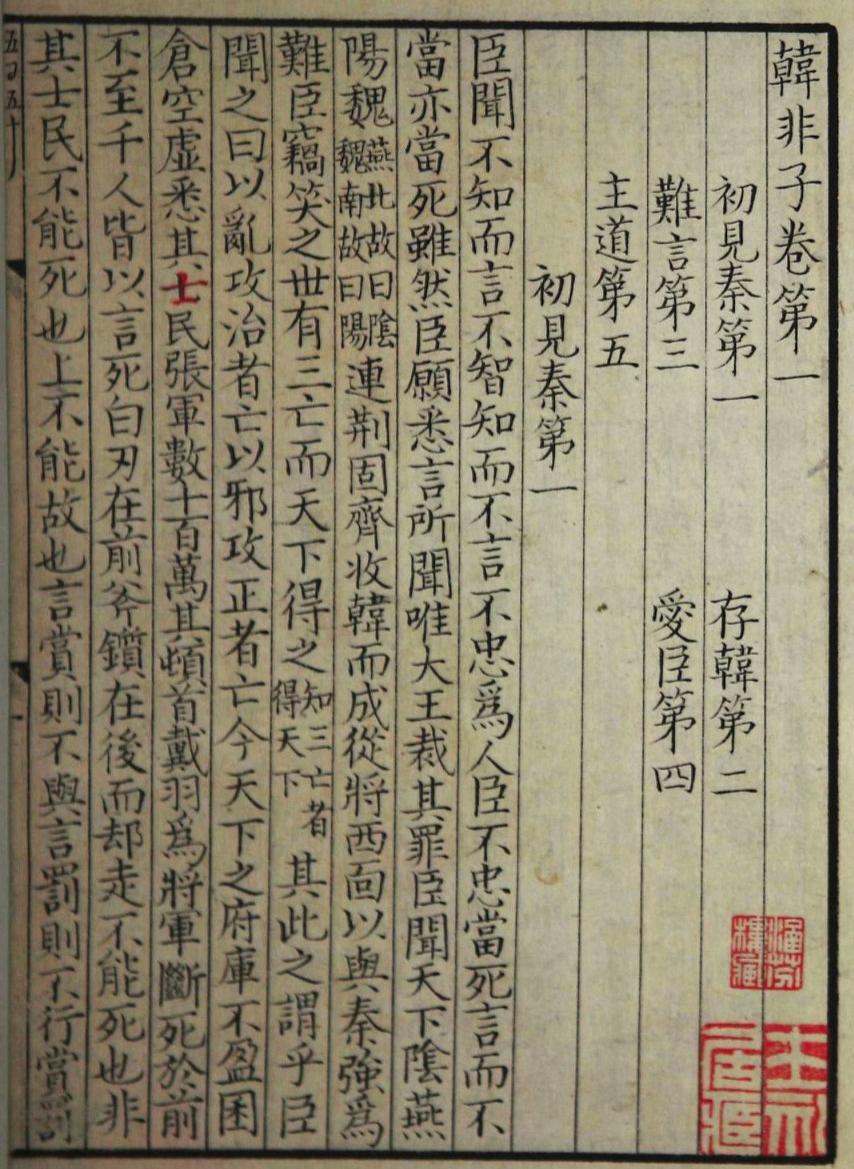 韓非子卷第一
初見秦第一 存韓第二
難言第三 愛臣第四
主道第五
初見秦第一
臣聞不知而言不智知而不言不忠爲人臣不忠當死言而不
當亦當死雖然臣願悉言所聞唯大王裁其罪臣聞天下陰燕
陽魏燕北故曰陰魏南故曰陽連荆固齊收韓而成從將西面以與秦強爲
難臣竊笑之世有三亡而天下得之知三亡者得天下其此之謂乎臣
聞之曰以亂攻治者亡以邪攻正者亡今天下之府庫不盈囷
倉空虛悉其士民張軍數十百萬其頓首戴羽爲將軍斷死於前
不至千人皆以言死白刃在前斧鑕在後而却走不能死也非
其士民不能死也上不能故也言賞則不與言罰則不行賞罰
涵芬樓藏